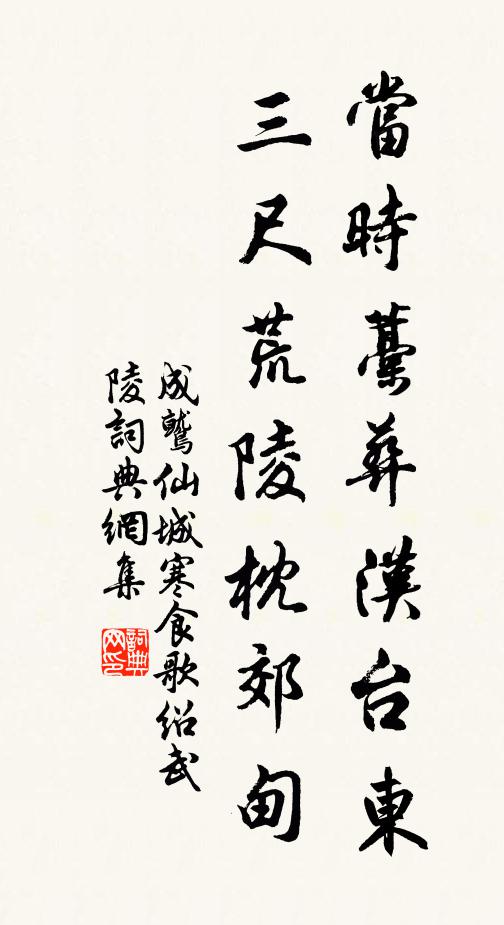 當時藳葬漢台東
三尺荒陵枕郊甸
成鷲仙城寒食歌绍武
陵詞典網集
詞典网印